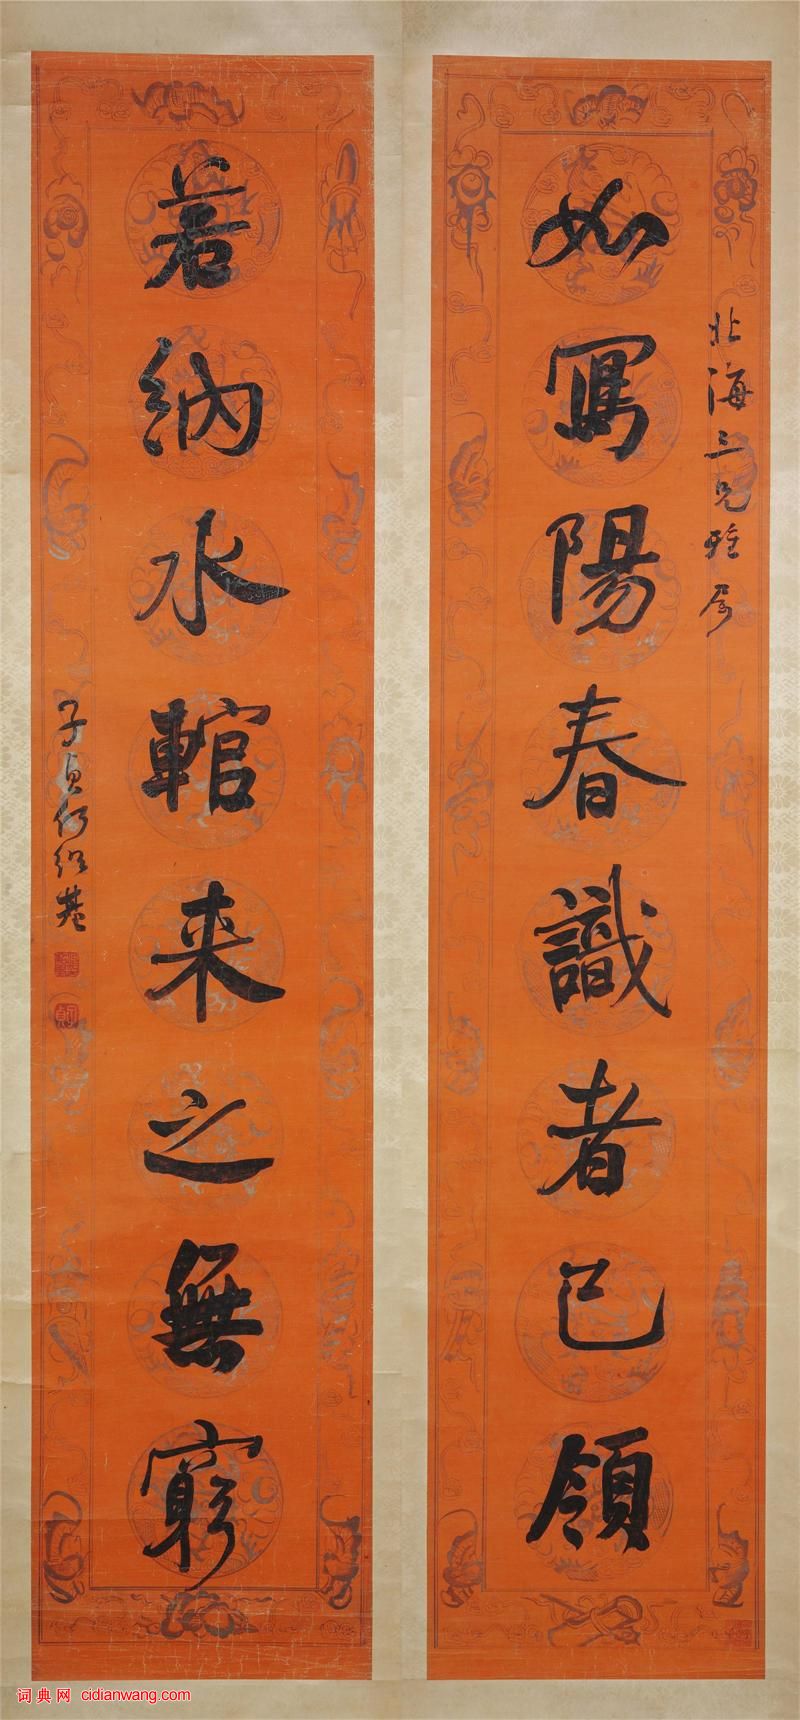 北海三兄雅屬
如寫陽春識者已領
若納水輨来之無窮
子貞何紹基
词典网 cidianwang.com